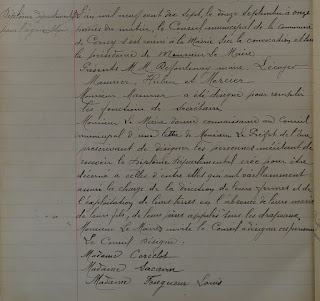 Diplôme départemental
pour l'agriculture
L'an mil neuf cent dix sept, le douze Septembre à onze
heures du matin, le Conseil municipal de la commune
de s'est réuni à la Mairie sur la convocation et sous
la présidence de Monsieur le Maire
Présents M.M. maire,
Meunier, et Mercier
Monsieur Meunier a été désigné pour remplir
les fonctions de Secrétaire
Monsieur le Maire donne connaissance au Conseil
municipal d'une lettre de Monsieur le Préfet de l'
prescrivant de désigner les personnes méritant de
recevoir le diplôme départemental créé pour être
décerné à celles d'entre elles qui ont vaillamment
assuré la charge de la direction de leurs fermes et de
l'exploitation de leurs terres en l'absence de leurs maris
de leurs fils, de leurs pères appelés sous les drapeaux.
Monsieur le Maire invite le Conseil à désigner ces personnes
Le Conseil désigne:
Madame
Madame
Madame Louis